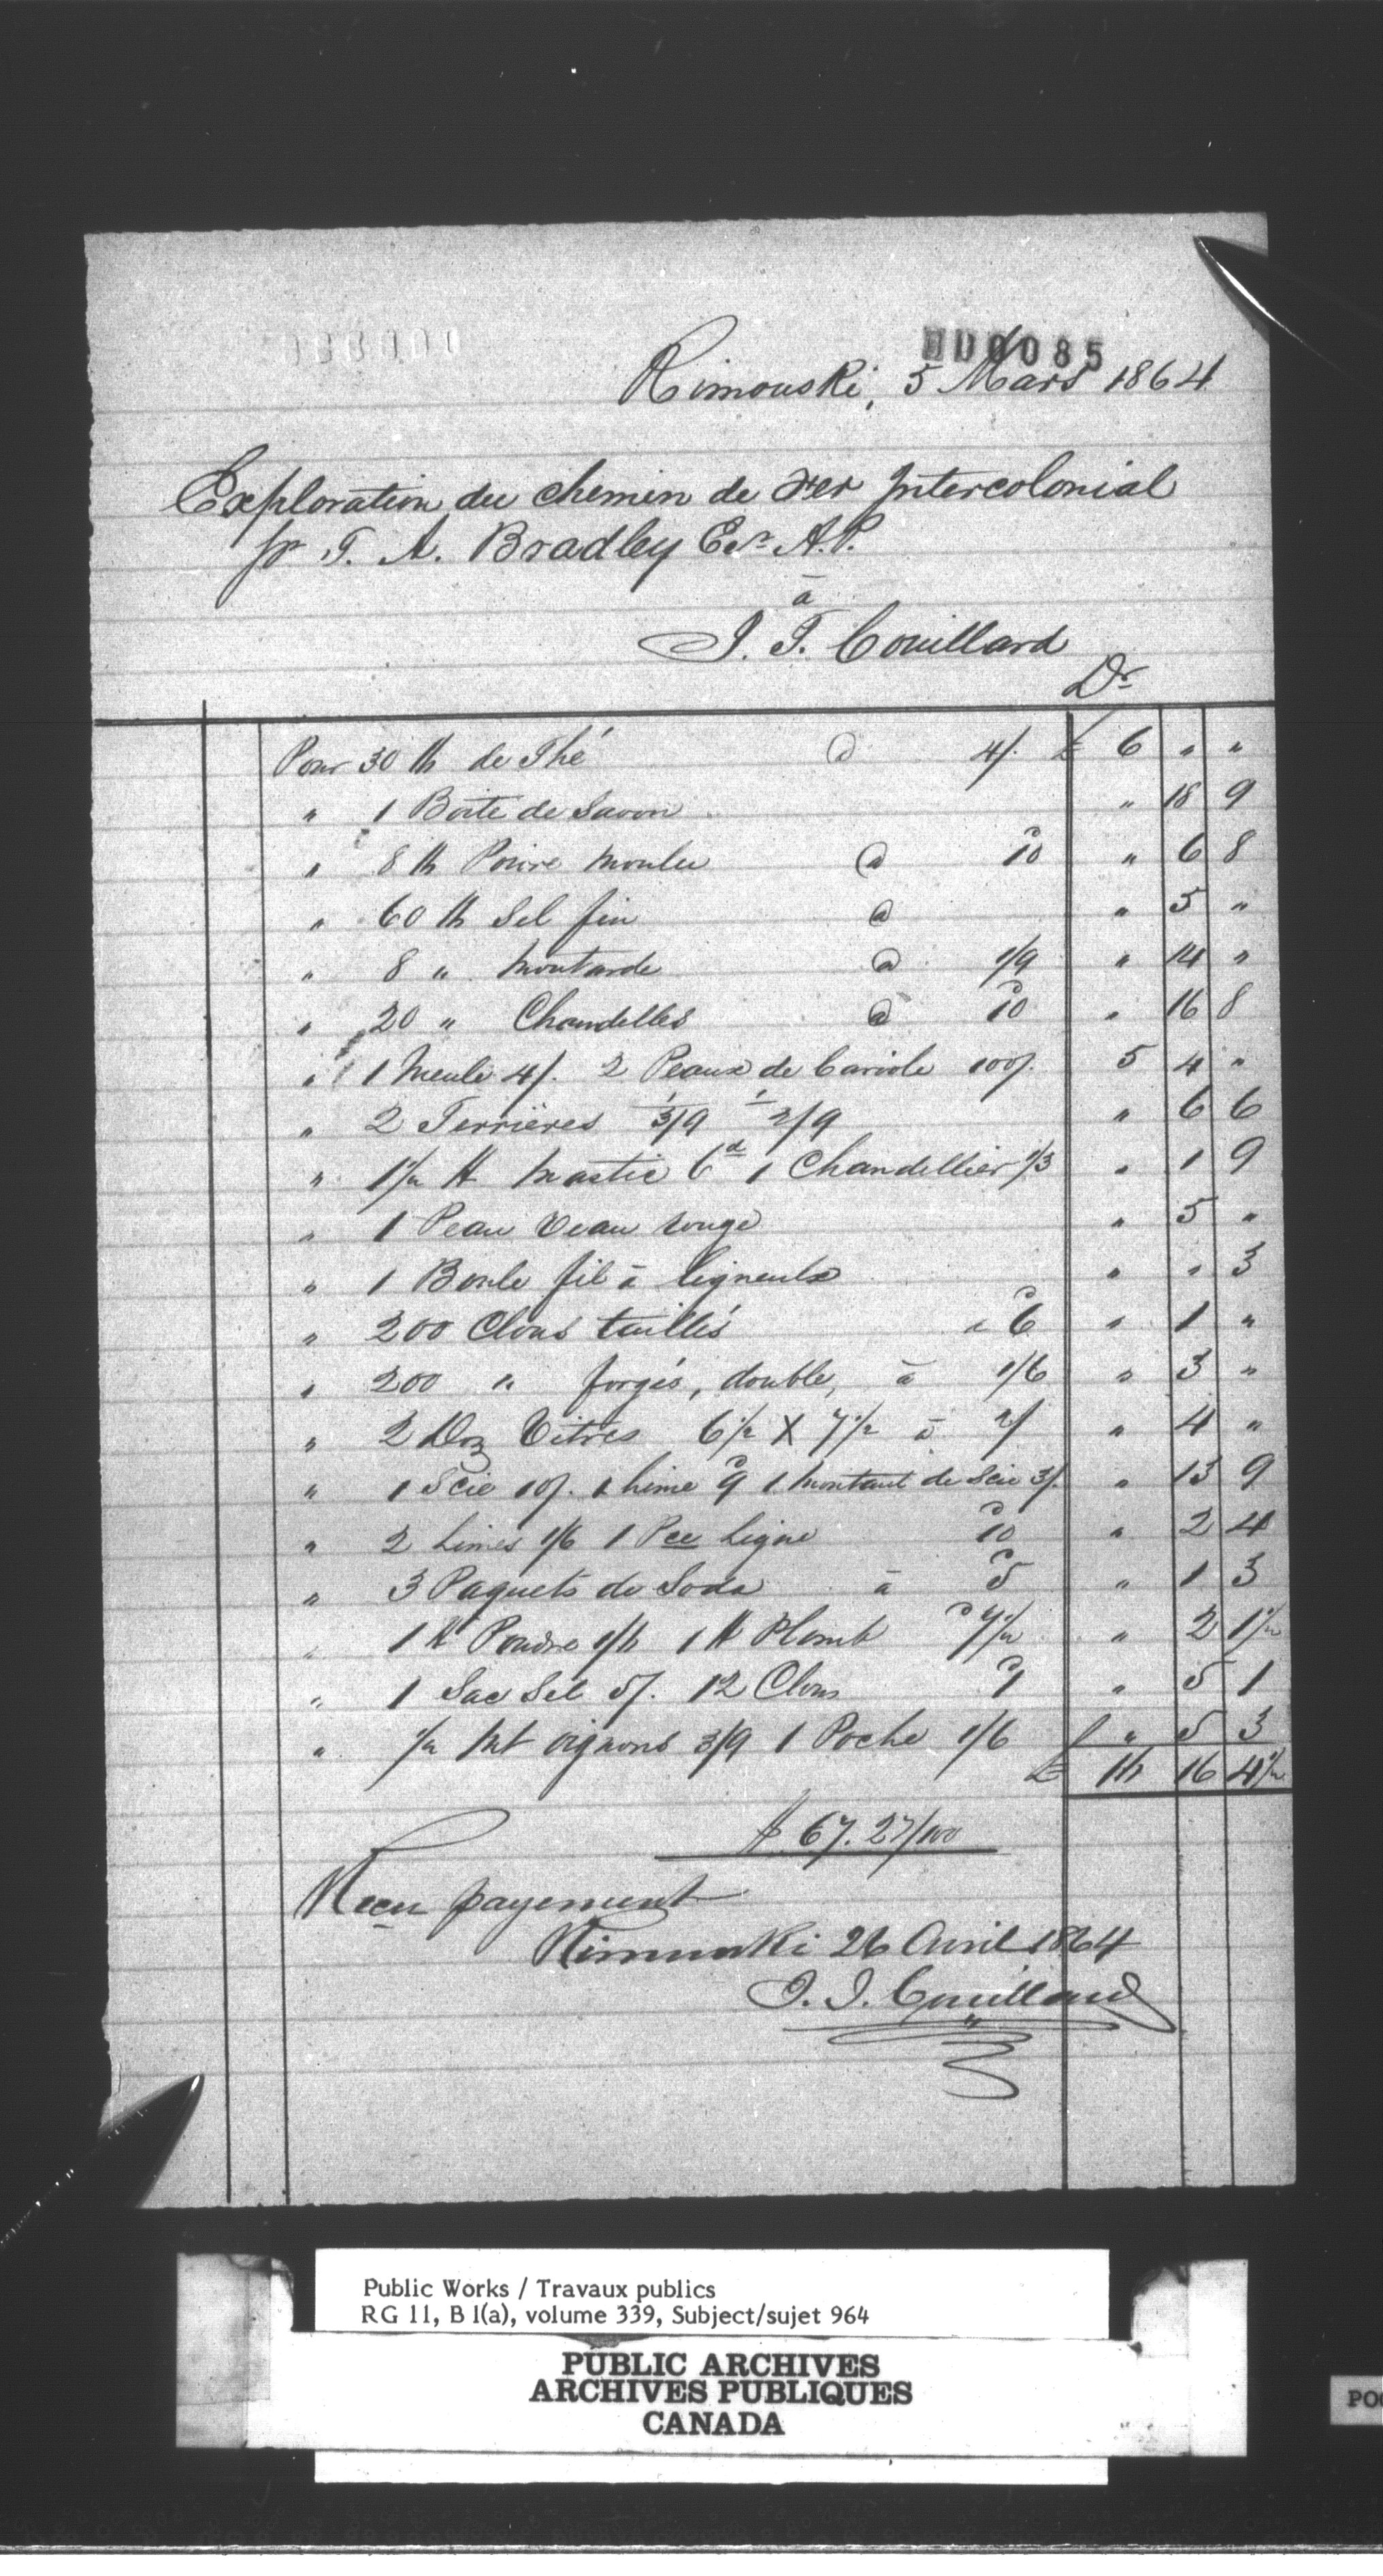 000085
Rimouski, 5 Mars 1864
Exploration du chemin de Fer Intercolonial
pr T. A. Bradley Esr A.P.
à
J. T. Couillard
Dr
Pour 30 lb de Thé @ 4/. £ 6 " "
" 1 Boite de Savon " 18 9
" 8 lb Poivre moulu @ 10 " 6 8
" 60 lb Sel fin @ " 5 "
" 8 " Moutarde @ 1/9 " 14 "
" 20 " Chandelles @ 10 " 16 8
" 1 Meule 4/. 2 Peaux de Cariole 100/. 5 4 "
" 2 Terrières 1 3/9 1 2/9 " 6 6
" 1 1/2 lb Mastic 6d 1 Chandellier 1/3 " 1 9
" 1 Peau Veau rouge " 5 "
" 1 Boule fil à ligneulx " " 3
" 200 Clous taillés à 6 " 1 "
" 200 " forgés, double, à 1/6 " 3 "
" 2 Doz Vitres 6 1/2 X 7 1/2 à 2/ " 4 "
" 1 Scie 10/. 1 Lime 9 1 Montant de Scie 3/. " 13 9
" 2 Limes 1/6 1 Pce Ligne 10 " 2 4
" 3 Paquets de Soda à 5 " 1 3
" 1 lb Poudre 1/6 1 lb Plomb 7 1/2 " 2 1 1/2
" 1 Sac Sel 5/. 12 Clous 1 " 5 1
" 1/2 Mt oignons 3/9 1 Poche 1/6 " 5 3
£ 16 16 4 1/2
$ 67.27/100
Recu payement
Rimouski 26 Avril 1864
J. T. Couillard
Public Works / Travaux publics
RG 11, B 1(a), volume 339, Subject/sujet 964
PUBLIC ARCHIVES
ARCHIVES PUBLIQUES
CANADA